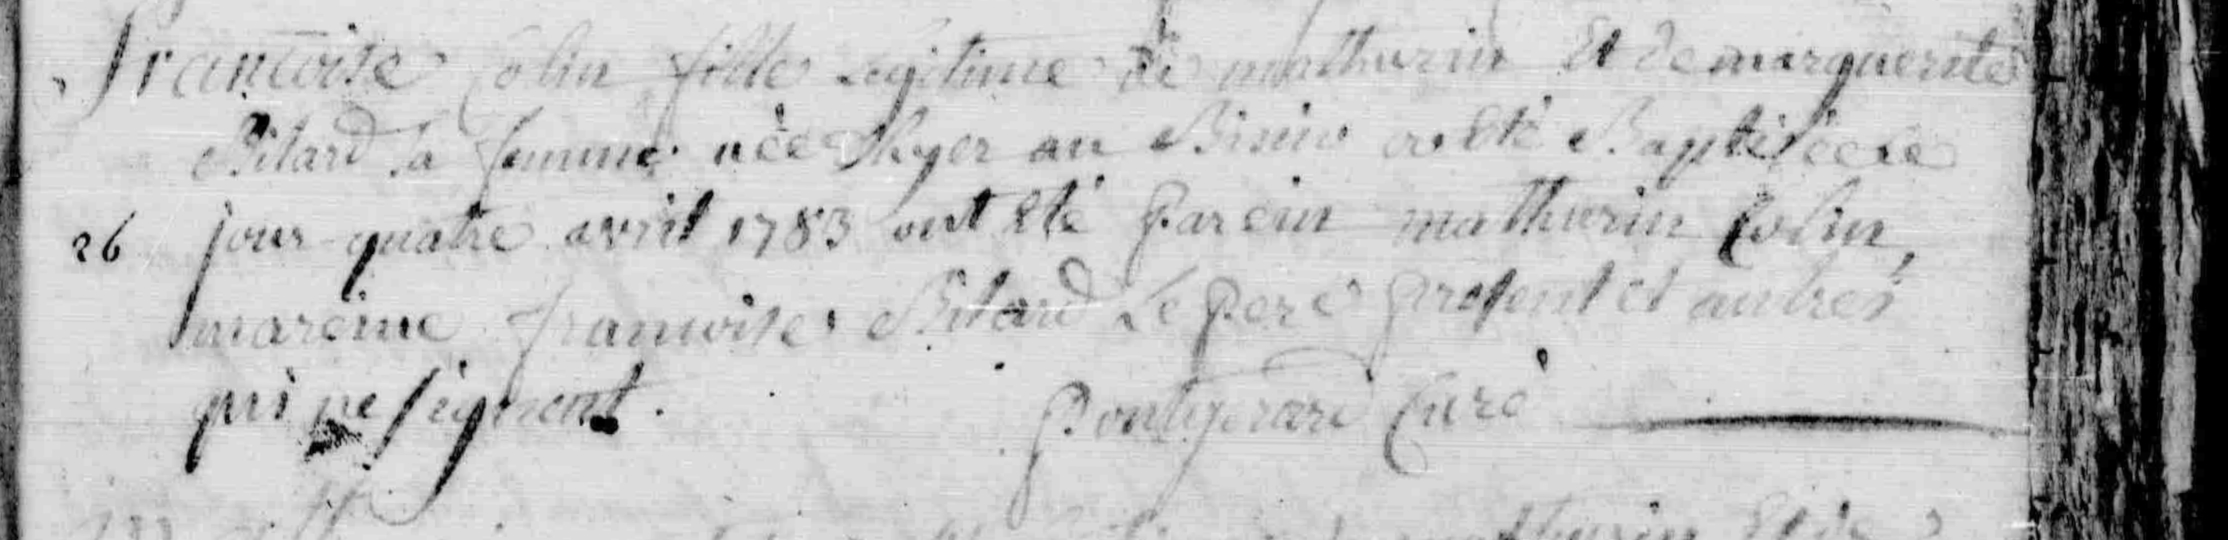 françoise Colin fille legitime de mathurin Et de marguerite
Bitard sa femme née hyer au a Eté Baptisée ce
26 jour quatre avril 1783 ont Eté parein mathurin Colin,
mareine francoise Bitard Le pere present et autres
qui ne signent. pontgerard Curé